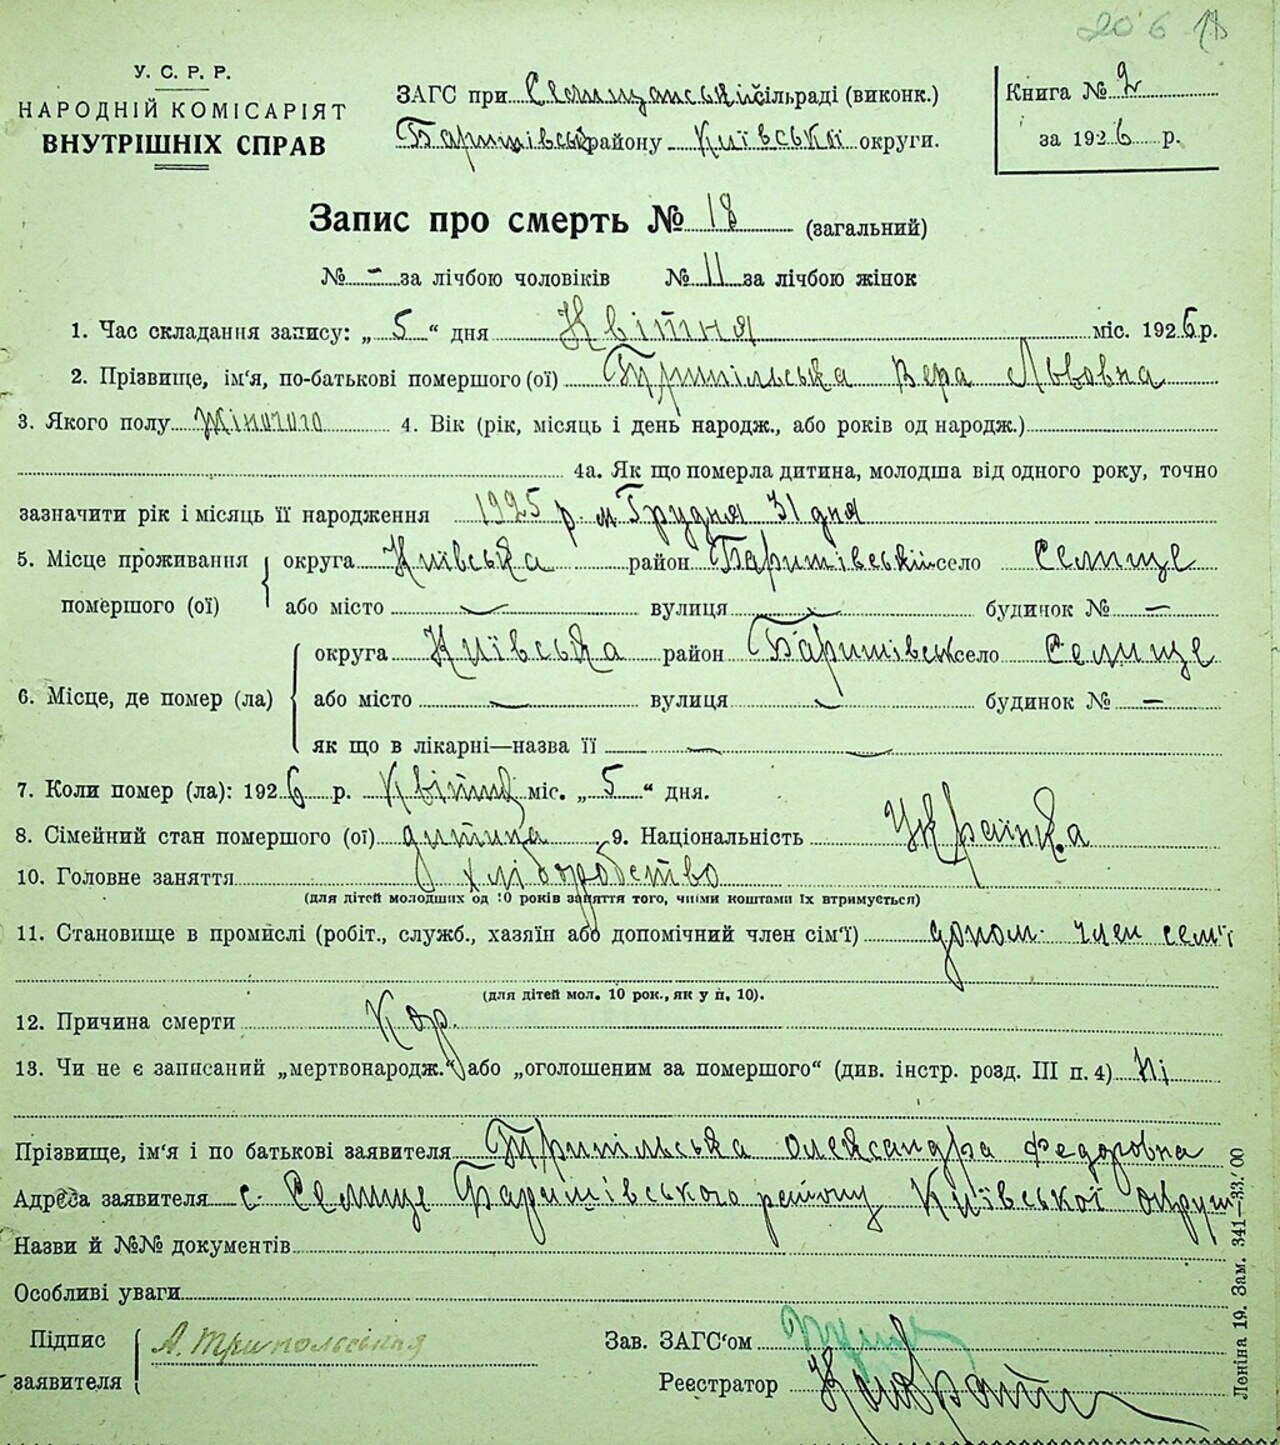 206 18
У. С. Р. Р.
НАРОДНІЙ КОМІСАРІЯТ
ВНУТРІШНІХ СПРАВ
ЗАГС при Селищанській сільраді (виконк.)
Баришівськ району Київської округи.
Книга № 2
за 1926 р.
Запис про смерть № 18 (загальний)
№ - за лічбою чоловіків № 11 за лічбою жінок
1. Час складання запису: „ 5 “ дня Квітня міс. 1926 р.
2. Прізвище, ім'я, по-батькові помершого (ої) Трипільська Вера Львовна
3. Якого полу Жіночого 4. Вік (рік, місяць і день народж., або років од народж.)
4а. Як що померла дитина, молодша від одного року, точно
зазначити рік і місяць її народження 1925 р. м. Грудня 31 дня
5. Місце проживання помершого (ої) округа Київська район Баришівський село Селище
або місто вулиця будинок № —
6. Місце, де помер (ла) округа Київська район Баришівськ село Селище
або місто вулиця будинок № —
як що в лікарні—назва її
7. Коли помер (ла): 1926 р. Квітня міс. „ 5 “ дня.
8. Сімейний стан помершого (ої) дитина 9. Національність Українка
10. Головне заняття хліборобство
(для дітей молодших од 10 років заняття того, чиїми коштами їх втримується)
11. Становище в промислі (робіт., служб., хазяїн або допомічний член сім'ї) допом. член сем'ї
(для дітей мол. 10 рок., як у п. 10).
12. Причина смерти Кор.
13. Чи не є записаний „мертвонародж.“ або „оголошеним за помершого“ (див. інстр. розд. III п. 4) Ні
Прізвище, ім'я і по батькові заявителя Трипільська Олександра Федоровна
Адреса заявителя с. Селище Баришівського району Київської округи
Назви й №№ документів
Особливі уваги
Підпис заявителя А. Трипольськая
Зав. ЗАГС'ом
Реєстратор
Леніна 19. Зам. 341—33.'00